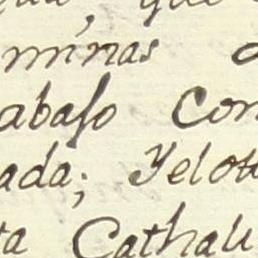 que
minas
abajo Con
ada; Yelot
ta Cathali